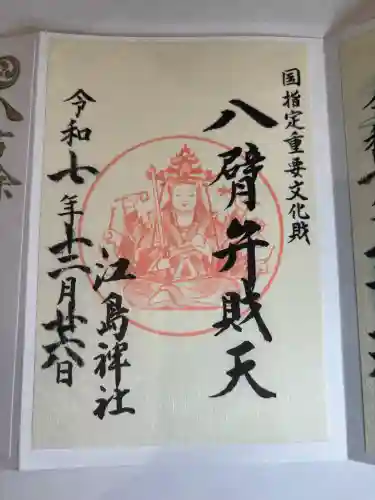 国指定重要文化財
八臂弁賎天
江島神社
令和七年十二月廿六日